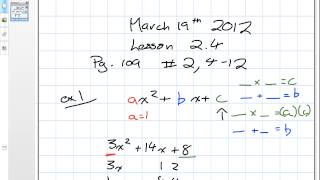 March 19th 2012
Lesson 2.4
Pg. 109 # 2, 4-12
ex 1
ax² + bx + c
a=1
_ x _ = c
_ + _ = b
↑ _ x _ = (a)(c)
_ + _ = b
3x² + 14x + 8
3x 1 2